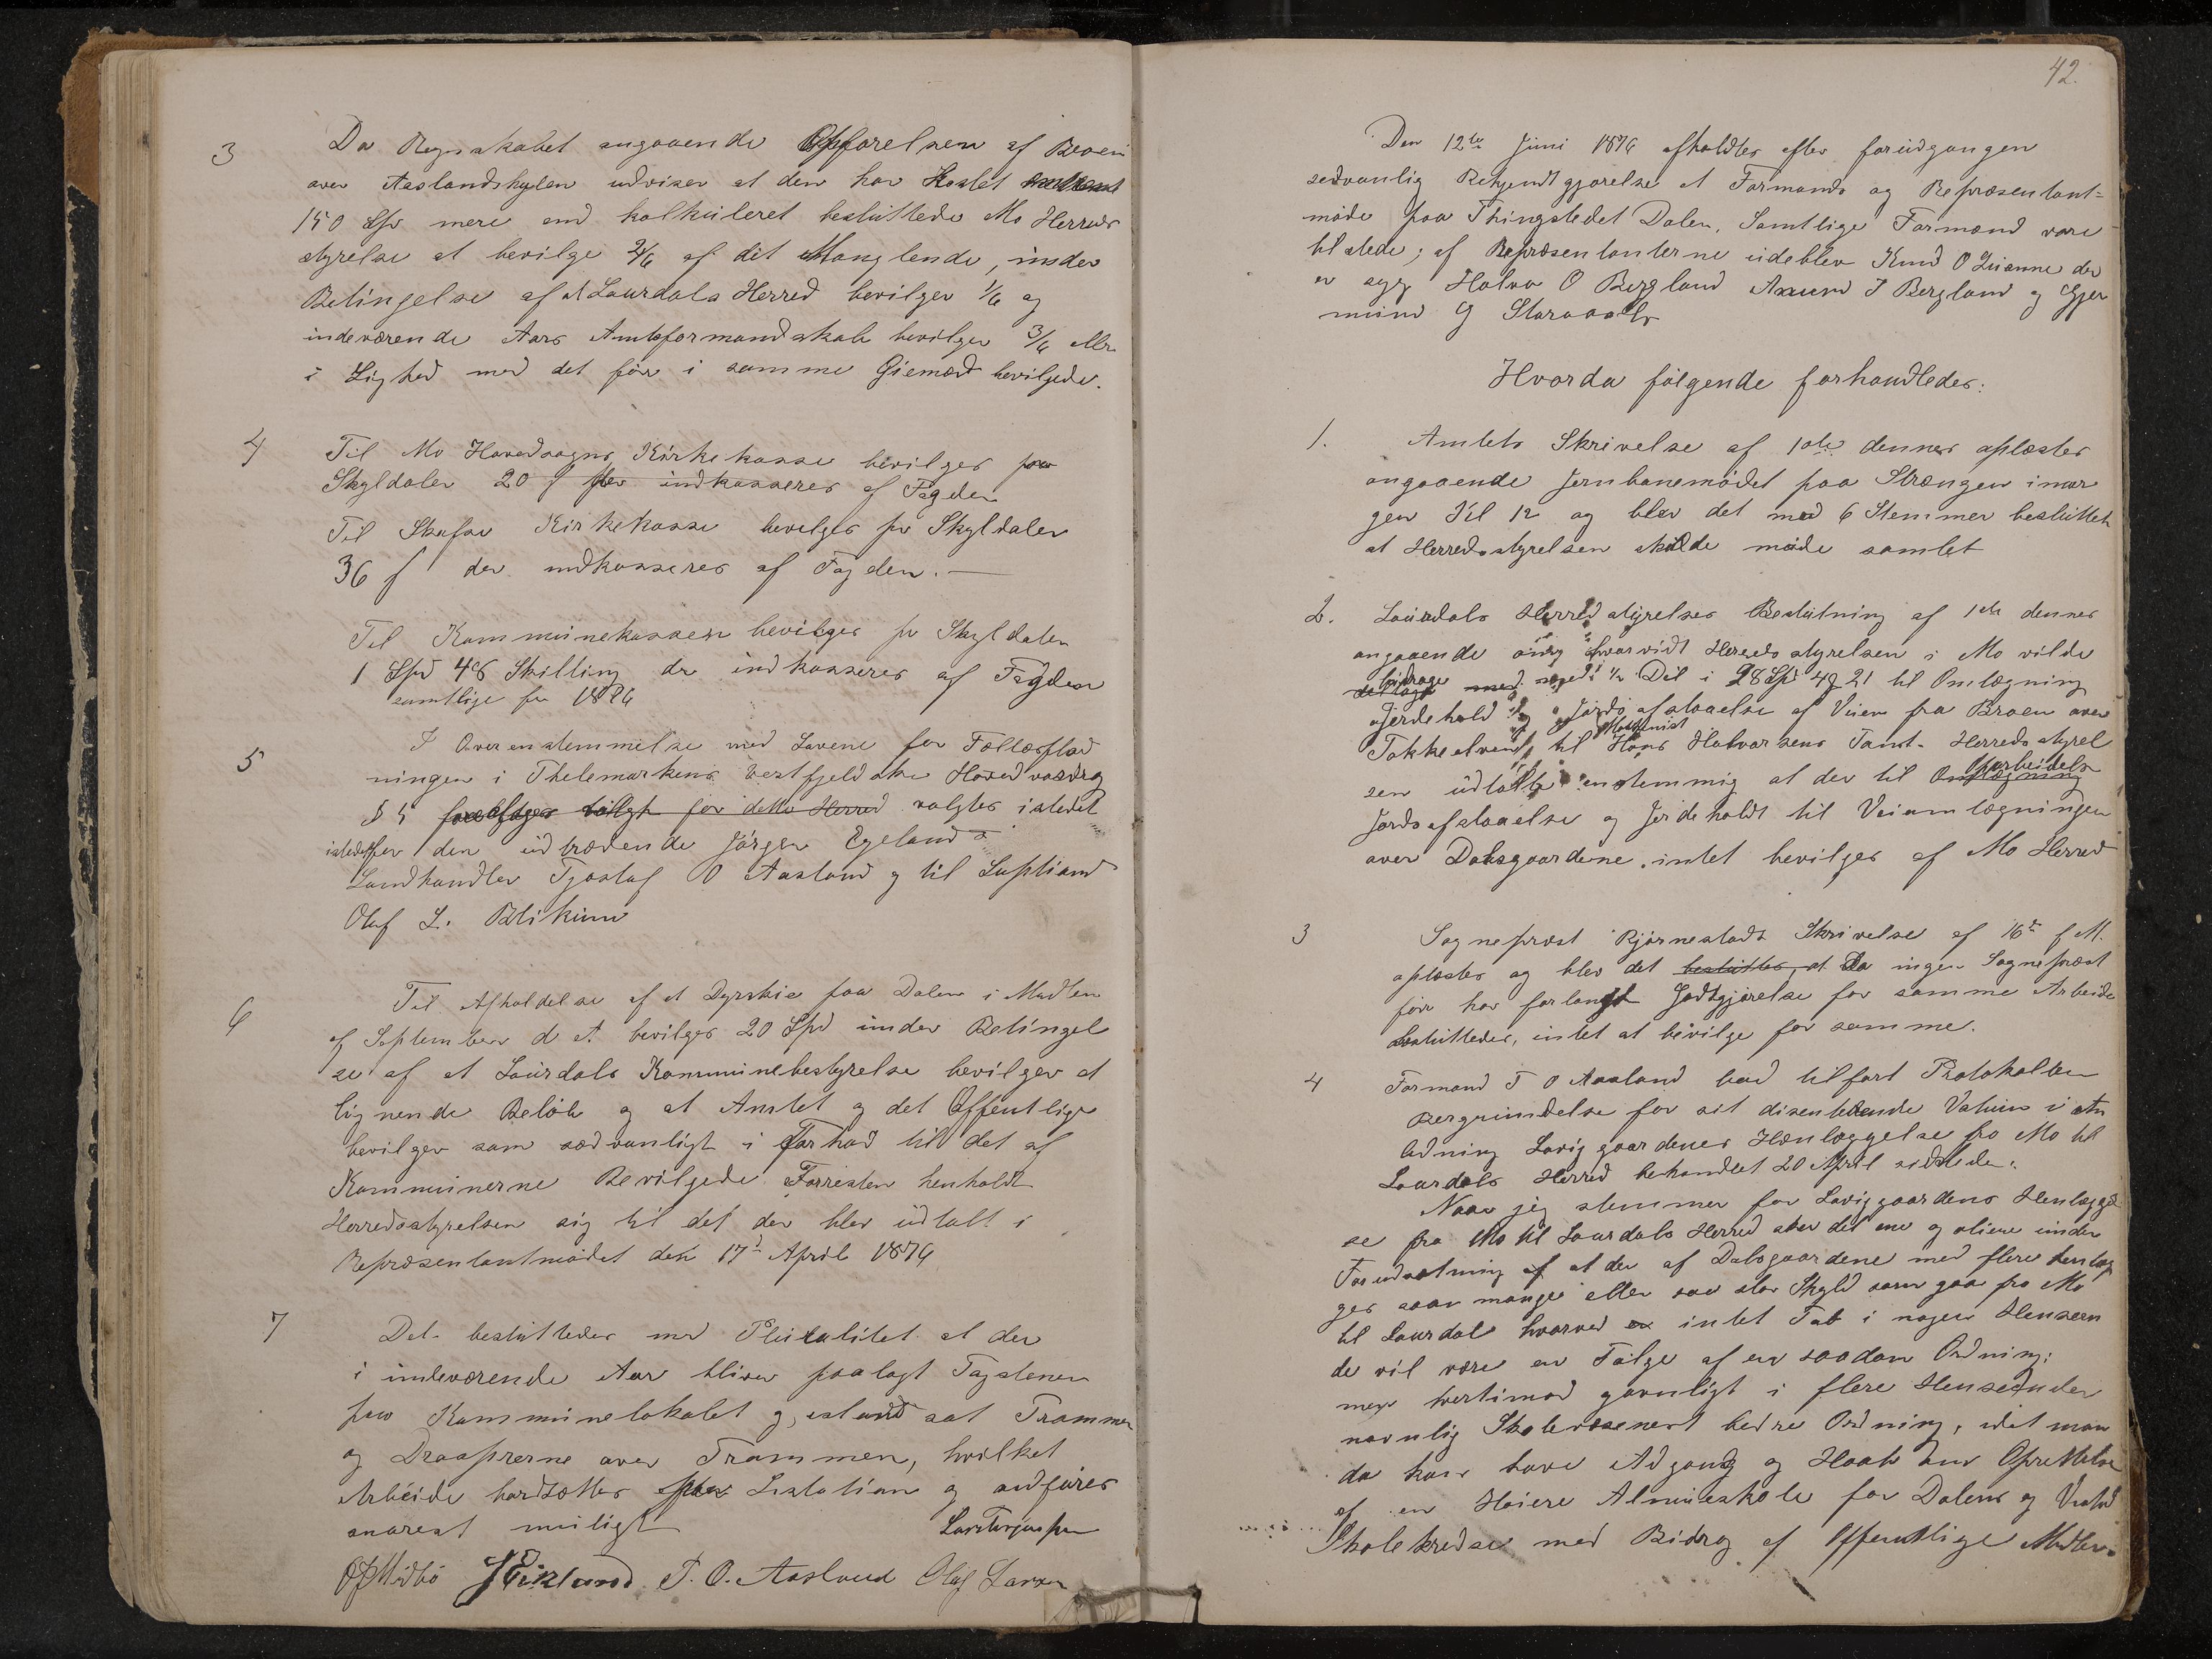 3 Da Regnskabet angaaende Opførelsen af Broen
over Aaslandshylen udviser at den har Kostet
150 Spd mere end kalkuleret besluttede Mo Herreds
styrelse at bevilge 2/6 af dit Manglende, under
Betingelse af at Laurdals Herred bevilger 1/6 og
indeværende Aars Amtsformandskab bevilger 3/6 eller
i Lighed med det før i samme Giemed bevilgede.
4 Til Mo Hovedsogns Kirkekasse bevilges pr
Skyldaler 20 ſ der indkasseres af Fogden
Til Skafse Kirkekasse bevilges pr Skyldaler
36 ſ der indkasseres af Fogden. —
Til Kommunekassen bevilges pr Skyldaler
1 Spd 48 Skilling der indkasseres af Fogden
samtlige for 1876
5 I Overenstemmelse med Lovene for Fællesflød
ningen i Thelemarkens vestfjeldske Hovedvasdrag
§ 5 for dette Herred valgtes istedet
istedetfor den udtrædende Jørgen Egeland
Landhandler Tjostof O Aasland og til Supliant
Oluf L. Blikum
6 Til Afholdelse af et Dyrskue paa Dalen i Midten
af September d A bevilges 20 Spd under Betingel
se af at Laurdals Kommunebestyrelse bevilger et
lignende Beløb og at Amtet og det Offentlige
bevilger som sædvanligt i Forhod til det af
Kommunerne Bevilgede Forresten henholdt
Herredsstyrelsen sig til det der blev udtalt i
Repræsentantmødet den 17de April 1876
7 Det besluttedes med Pluralitet at der
i indeværende Aar bliver paalagt Tagstenen
paa Kommunelokalet og istand sat Trammen
og Draaprerne over Trammen, hvilket
Arbeide bortsættes ved Lisitation og udføres
snarest muligt
OPMidbö Eikland T. O. Aasland Olaf Larsen
42.
Den 12te Juni 1876 afholdtes efter forudgangen
sedvanlig Bekjendtgjørelse et Formands og Repræsentant=
møde paa Thingstedet Dalen. Samtlige Formænd vare
tilstede; af Repræsentanterne udeblev Knud O Lienne der
er syg Halvor O Bergland Anund J Bergland og Gjer
mund G Storaasli
Hvorda følgende forhandledes:
1. Amtets Skrivelse af 10de dennes oplæstes
angaaende Jernbanemødet paa Strængen imor
gen Kl 12 og blev det med 6 Stemmer besluttet
at Herredsstyrelsen skulde møde samlet
2. Laurdals Herredstyrelses Beslutning af 1ste dennes
angaaende hvorvidt Herredsstyrelsen i Mo vilde
bidrage med noget 1/2 Del i 28 Spd 4ꝗ 21 til Omlægning
Gjerdehold og Jords afstaaelse af Veien fra Broen over
Tokkeelven til Hans Halvorsens Tomt. Herredsstyrel
sen udtalte enstemmig at der til Oparbeidels
Jordsafstaaelse og Jerdeholdt til Veiomlægningen
over Dalsgaardene intet bevilges af Mo Herred
3 Sognepræst Bjørnestads Skrivelse af 16de f M.
oplæstes og blev det besluttes, at Da ingen Sognepræst
før har forlangt Godtgjørelse for samme Arbeide
besluttedes, intet at bevilge for samme.
4 Formand T O Aasland bad tilført Protokollen
Bergrundelse for sit disenterende Votum i An
ledning Laviggaardenes Henlæggelse fra Mo til
Laurdals Herred behandlet 20 April sidstleden.
Naar jeg stemmer for Laviggaardens Henlæggel
se fra Mo til Laurdals Herred sker det ene og alene under
Forudsætning af at der af Dalsgaardene med flere henlæg
ges saa mange eller saa stor Skyld som gaar fra Mo
til Laurdal hvorved intet Tab i nogen Henseen
de vil være en Følge af en saadan Ordning;
men hvertimod gavnligt i flere Henseender
navnlig Skolevæsenest bedre Ordning, idet man
da kan have Adgang og Haab om Oprettelse
af en Høiere Almueskole for Dalens og
Skolekredse med Bidrag af Offentlige Midler.